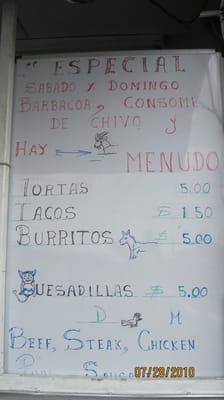 ESPECIAL
SABADO Y DOMINGO
BARBACOA, CONSOME
DE CHIVO y
HAY
MENUDO
TORTAS 5.00
TACOS $ 1.50
BURRITOS $ 5.00
QUESADILLAS $ 5.00
D M
BEEF, STEAK, CHICKEN
07/29/2010